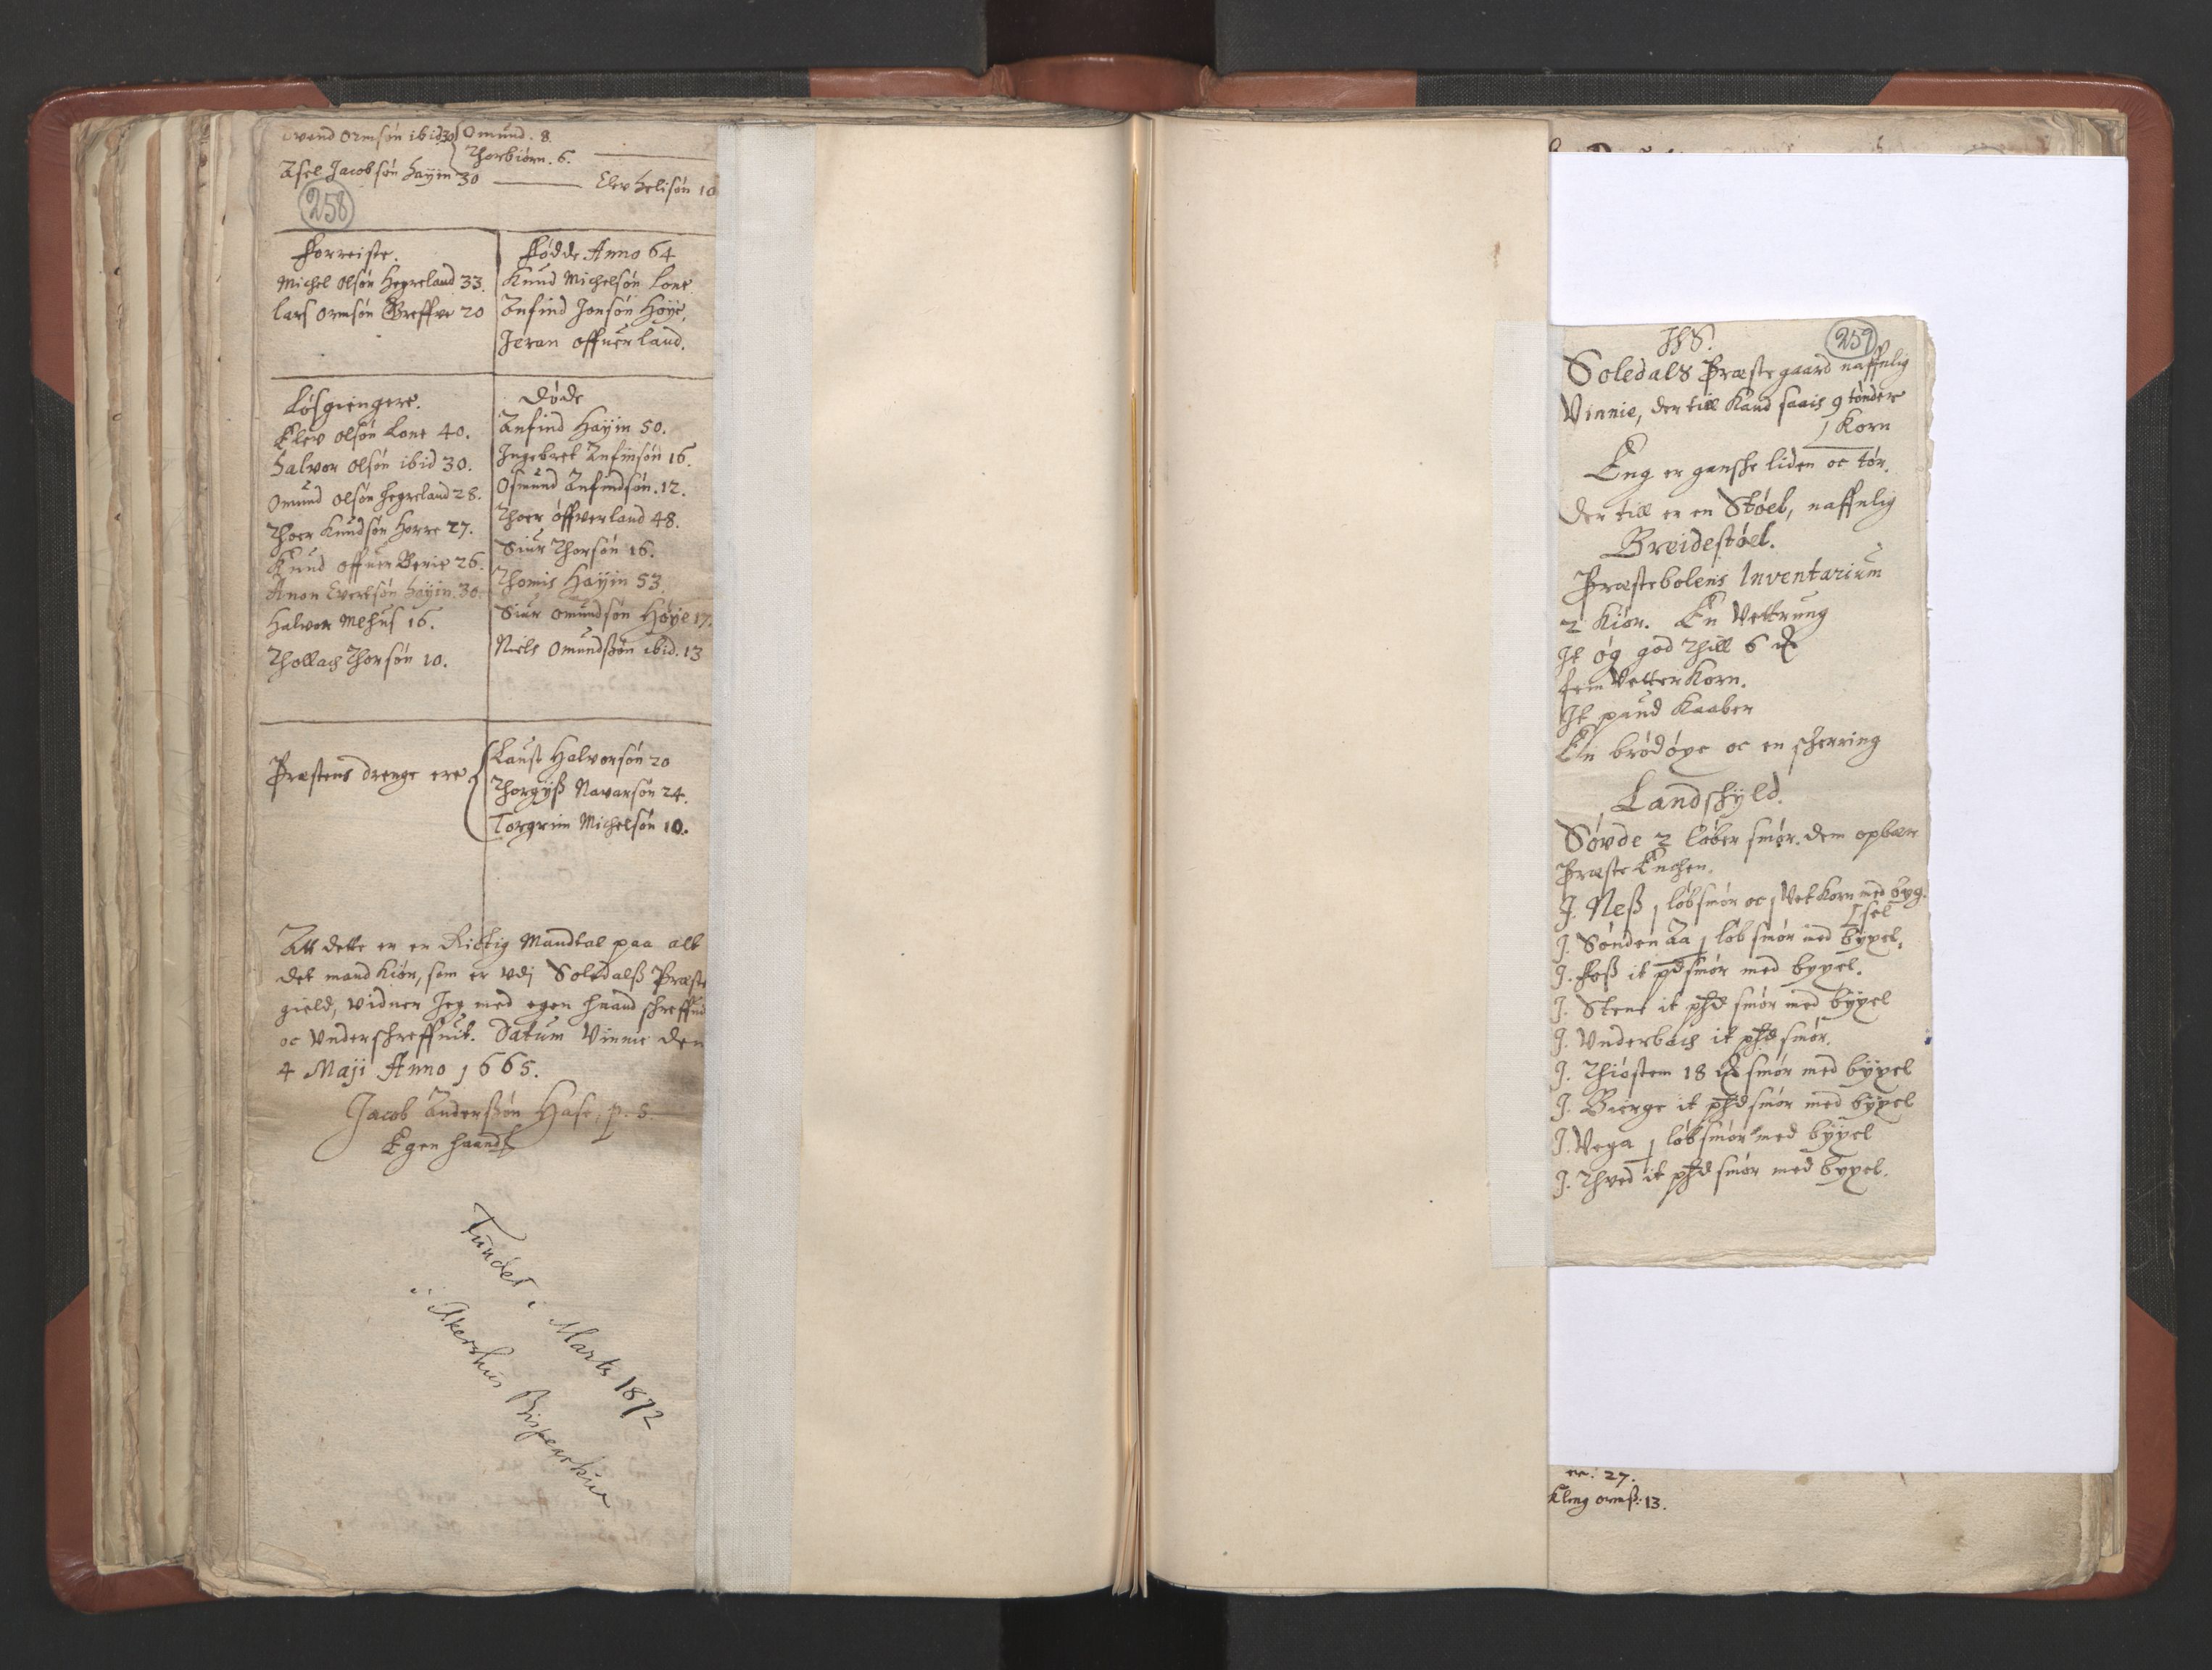 vend Ormsøn ibid 30 Omund. 8.
Thorbiørn. 6.
Axsel Jacobsøn Hayin 30 Elev Helisøn 10
258
Forreiste.
Michel Olsøn Hegreland 33.
Lars Ormsøn Greffue 20
Fødde Anno 64
Knud Michelsøn Lone
Anfind Jonsøn Høye,
Jeran offuerland.
Løsgiengere.
Elev Olsøn Lone 40.
Halvor Olsøn ibid 30.
Omund Olsøn Hegreland 28.
Thoer Knudsøn Horre 27.
Knud offuer Berie 26.
Anon Evertsøn Hayin. 30.
Halvor Mehus 16.
Thollach Thorsøn 10.
Døde
Anfind Hayin 50.
Ingebret Anfinsøn 16.
Osmund Anfindsøn. 12.
Thoer Offverland 48.
Siur Thorsøn 16.
Thomis Hayin 53.
Siur Omundsøn Høye 17.
Niels Omundsøn ibid. 13
Præstens drenge ere
Laust Halvorsøn 20
Thorgyß Navarsøn 24.
Torgrim Michelsøn 10.
Att dette er en Richtig Mandtal paa alt
det mand Kiøn, som er vdj Soledalß Præste
gield, vidner Jeg med egen haand schreffuit
oc Vnderschreffuit. Datum Vinnie den
4 Maji Anno 1665.
Jacob Anderßøn Hase, p. s.
Egen haand
Fundet i Marts 1872
i Akershus Bispearkiv
JhS.
259
Soledals Præstegaard naffnlig
Vinnie, der till Kand saais 9 tønder
Korn
Eng er gansche liden oc tør.
Der till er en Støel, naffnlig
Breidestøel.
Præstebolens Inventarium
2 Kiør. En Vettrung
It øg god thill 6 D
fem Vetter Korn.
It pund Kaaber
En brødøxe oc en scherring
Landschyld.
Søvde 2 løber smør. dem opbær
Præste Enchen.
J. Neß 1 løb smør oc 1 Vet Korn med byg-
sel
J. Sønden Aa 1 løb smør med byxel.
J. Foß it pd smør med byxel.
J. Stene it phd smør med byxel
J. Vnderbach it phd smør.
J. Thiøstem 18 mk smør med byxel
J. Bierge it phd smør med byxel
J. Vega 1 løb smør med byxel
J. Thved it phd smør med byxel.
27.
Kleng ormß: 13.